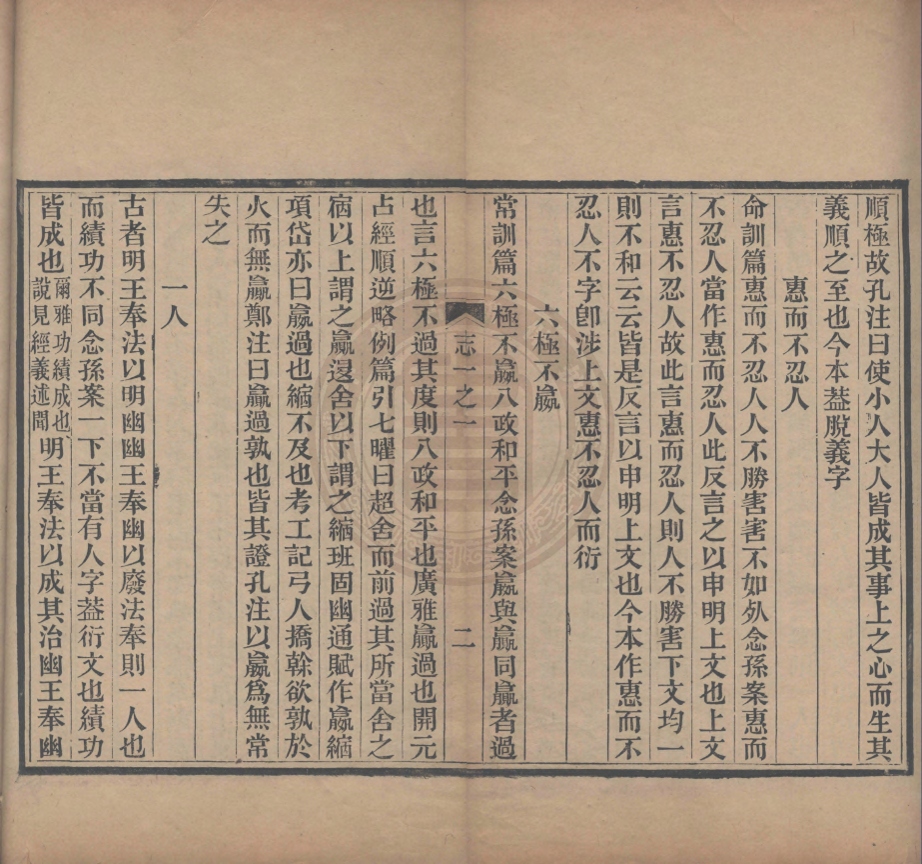 順極故孔注曰使小人大人皆成其事上之心而生其
義順之至也今本葢脫義字
惠而不忍人
命訓篇惠而不忍人人不勝害害不如死念孫案惠而
不忍人當作惠而忍人此反言之以申明上文也上文
言惠不忍人故此言惠而忍人則人不勝害下文均一
則不和云云皆是反言以申明上文也今本作惠而不
忍人不字卽涉上文惠不忍人而衍
六極不嬴
常訓篇六極不嬴八政和平念孫案嬴與贏同贏者過
志一之一
二
也言六極不過其度則八政和平也廣雅贏過也開元
占經順逆略例篇引七曜曰超舍而前過其所當舍之
宿以上謂之贏退舍以下謂之縮班固幽通賦作嬴縮
項岱亦曰嬴過也縮不及也考工記弓人撟榦欲孰於
火而無贏鄭注曰贏過孰也皆其證孔注以嬴爲無常
失之
一人
古者明王奉法以明幽幽王奉幽以廢法奉則一人也
而績功不同念孫案一下不當有人字葢衍文也績功
皆成也爾雅功績成也說見經義述聞明王奉法以成其治幽王奉幽